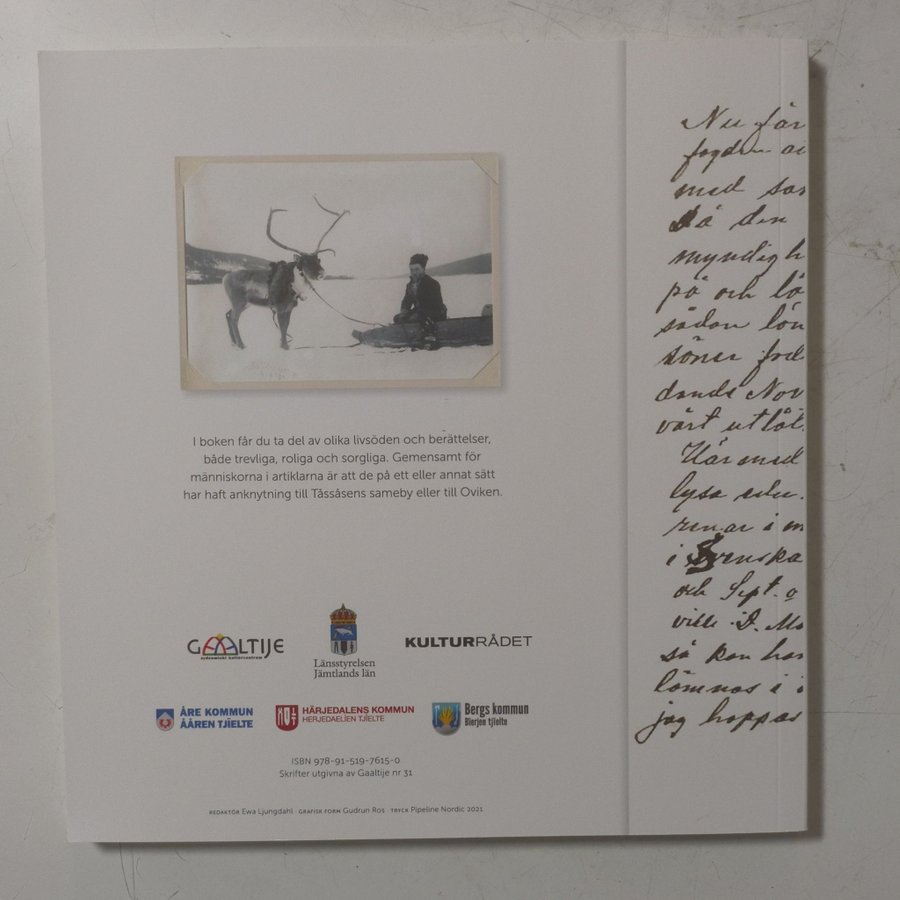 I boken får du ta del av olika livsöden och berättelser,
både trevliga, roliga och sorgliga. Gemensamt för
människorna i artiklarna är att de på ett eller annat sätt
har haft anknytning till Tåssåsens sameby eller till Oviken.
GAALTIJE
sydsamiskt kulturcentrum
Länsstyrelsen
Jämtlands län
KULTURRÅDET
ÅRE KOMMUN
ÅÅREN TJÏELTE
HÄRJEDALENS KOMMUN
HERJEDAELIEN TJÏELTE
Bergs kommun
Bierjen tjïelte
ISBN 978-91-519-7615-0
Skrifter utgivna av Gaaltije nr 31
REDAKTÖR Ewa Ljungdahl · GRAFISK FORM Gudrun Ros · TRYCK Pipeline Nordic 2021
Nu får
med
Då den
myndigh
på och lö
sådan lön
söner
Nov
vårt utlåt
Härmed
lysa
i Svenska
och Sept. o
ville
så kan
lämnas i
jag hoppas